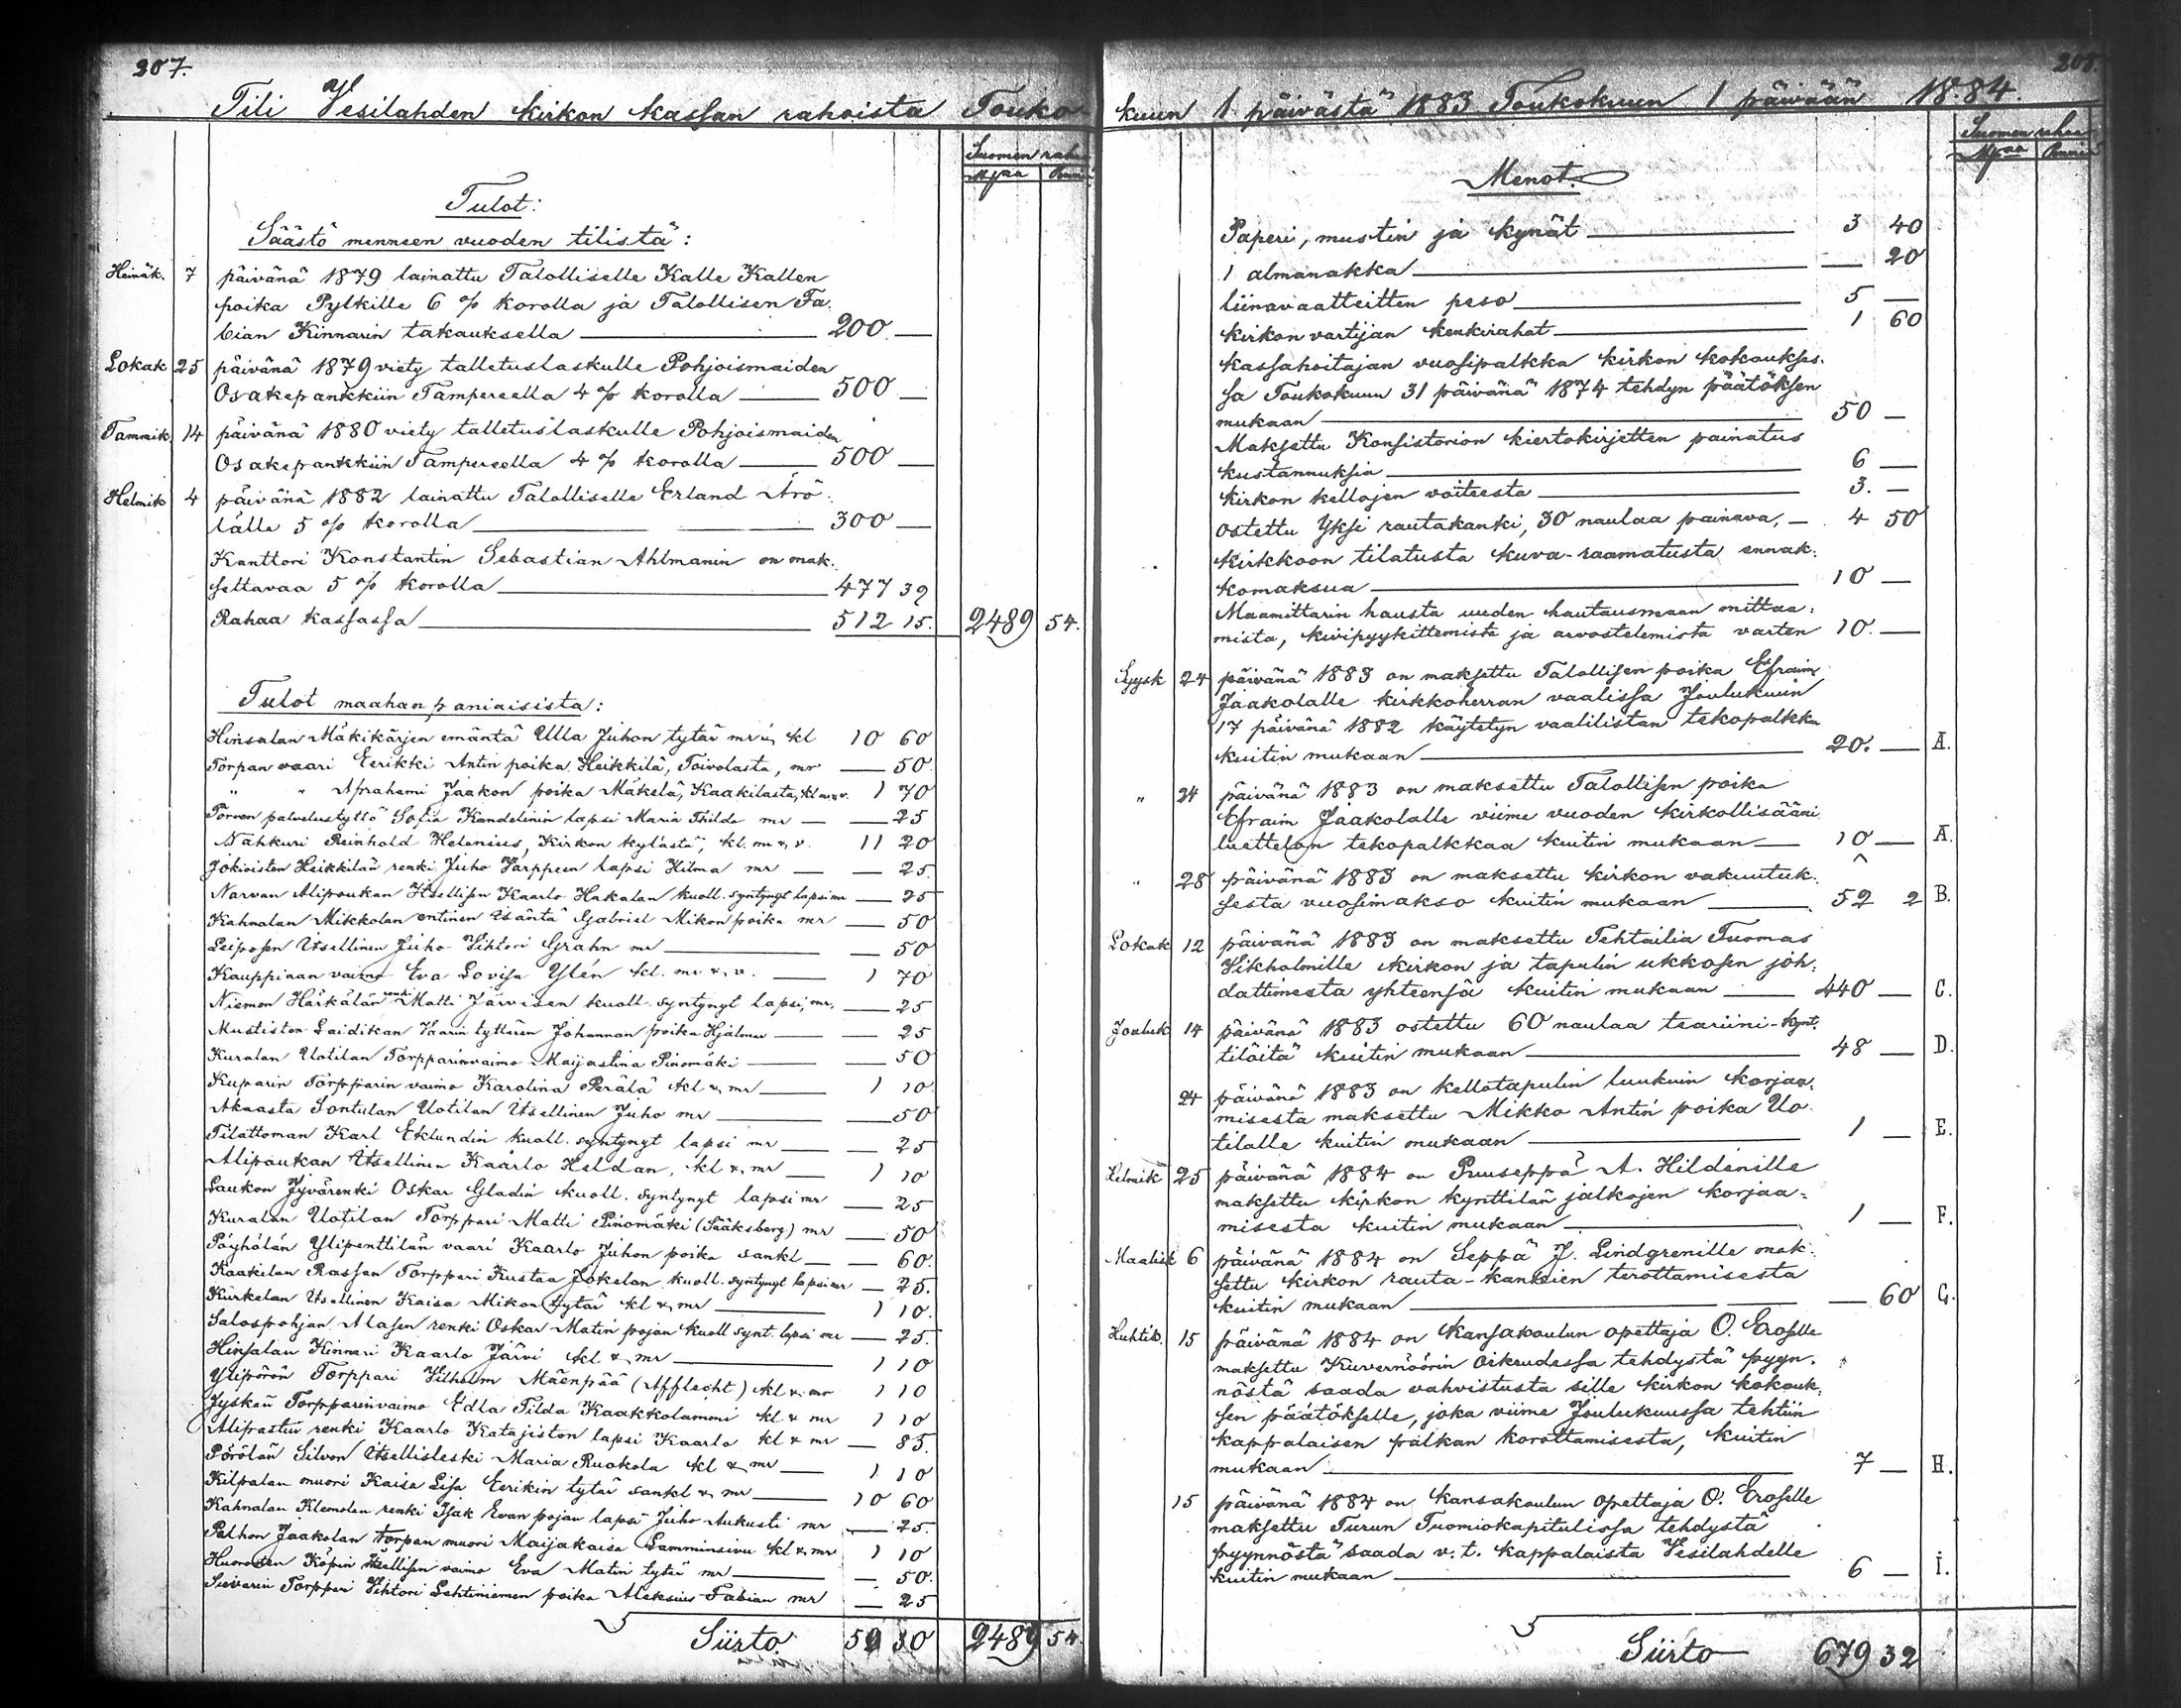 207.
Tili Vesilahden kirkon kassan rahoista Touko-
Suomen rahaa
Mkaa Penniä
Tulot:
Säästö menneen vuoden tilistä:
Heinäk. 7 päivänä 1879 lainattu Talolliselle Kalle Kallen
poika Pylkille 6 % korolla ja Talollisen Fa-
bian Kinnarin takauksella — 200 —
Lokak 25 päivänä 1879 viety talletuslaskulle Pohjoismaiden
Osakepankkiin Tampereella 4 % korolla — 500 —
Tammik 14 päivänä 1880 viety talletuslaskulle Pohjoismaiden
Osakepankkiin Tampereella 4 % korolla — 500 —
Helmik 4 päivänä 1882 lainattu Talolliselle Erland Arö-
lälle 5 % korolla — 300 —
Kanttori Konstantin Sebastian Ahlmanin on mak-
settavaa 5 % korolla — 477 39
Rahaa kassassa — 512 15. 2489 54.
Tulot maahanpaniaisista:
Hinsalan Mäkikärjen emäntä Ulla Juhon tytär mr v, kl 10 60
Torpan vaari Eerikki Antin poika Heikkilä, Toivolasta, mr — 50.
" " Aprahami Jaakon poika Mäkelä, Kaakilasta, kl mr v. 1 70
Torven palvelustyttö Sofia Kandelinin lapsi Maria Thilda mr — 25
Nahkuri Reinhold Helenius, Kirkon kylästä, kl. mr & v. 11 20
Jokioisten Heikkilän renki Juho Varppeen lapsi Hilma mr — 25.
Narvan Alipoukan Itsellisen Kaarlo Hakalan kuoll. syntynyt lapsi mr — 25
Kahnalan Mikkolan entinen isäntä Gabriel Mikon poika mr — 50
Leiposen Itsellinen Juho Vihtori Grahn mr — 50
Kauppiaan vaimo Eva Lovisa Ylén kl. mr & v. — 1 70
Niemen Härkälän renki Matti Järvisen kuoll. syntynyt lapsi, mr. — 25
Mustisten Laidikan Vaarin tyttären Johannan poika Hjalmar — 25
Kuralan Uotilan Torpparinvaimo Maijastina Pinomäki — 50
Kuparin Torpparin vaimo Karolina Perälä kl & mr — 1 10.
Akaasta Sontulan Uotilan Itsellinen Juho mr — 50
Tilattoman Karl Eklundin kuoll. syntynyt lapsi mr — 25
Alipoukan Itsellinen Kaarlo Heldan, kl & mr — 1 10
Laukon Jyvärenki Oskar Gladin kuoll. syntynyt lapsi mr — 25
Kuralan Uotilan Torppari Matti Pinomäki (Sääksberg) mr — 50
Pöyhölän Ylipenttilän vaari Kaarlo Juhon poika sankl — 60.
Kaakilan Rassan Torppari Kustaa Jokelan kuoll. syntynyt lapsi mr — 25.
Kirkelan Itsellinen Kaisa Mikon tytär kl & mr — 1 10.
Salospohjan Alasen renki Oskar Matin pojan kuoll synt. lapsi mr — 25.
Hinsalan Kinnari Kaarlo Järvi kl & mr — 1 10
Ylipörön Torppari Vilhelm Mäenpää (Afflecht) kl & mr 1 10
Jyskän Torpparinvaimo Edla Tilda Kaakkolammi kl & mr 1 10
Aliprastun renki Kaarlo Katajiston lapsi Kaarlo kl & mr — 85.
Pörölän Silvon Itsellisleski Maria Ruokola kl & mr — 1 10
Kilpalan muori Kaisa Lisa Eerikin tytär sankl & mr — 10 60
Kahnalan Klemolan renki Isak Evan pojan lapsi Juho Aukusti mr — 25.
Palhon Jaakolan torpan muori Maijakaisa Lamminsivu kl & mr 1 10
Huorosten Köpin Itsellisen vaimo Eva Matin tytär mr — 50.
Torppari Vihtori Lehtiniemen poika Aleksius Fabian mr — 25
Siirto 50 30 2489 54.
208.
kuun 1 päivästä 1883 Toukokuun 1 päivään 1884.
Suomen rahaa
Mkaa Penniä
Menot.
Paperi, mustin ja kynät — 3 40
1 almanakka — 20
liinavaatteitten peso — 5 —
kirkon vartijan kenkirahat — 1 60
kassahoitajan vuosipalkka kirkon kokoukses-
sa Toukokuun 31 päivänä 1874 tehdyn päätöksen
mukaan — 50 —
Maksettu Konsistorion kiertokirjetten painatus
kustannuksia — 6 —
kirkon kellojen voiteesta — 3. —
ostettu Yksi rautakanki, 30 naulaa painava, — 4 50
kirkkoon tilatusta kuva-raamatusta ennak-
komaksua — 10 —
Maamittarin hausta uuden hautausmaan mittaa-
mista, kivipyykittemistä ja arvostelemista varten 10. —
Syysk 24 päivänä 1883 on maksettu Talollisen poika Efraim
Jaakolalle kirkkoherran vaalissa Joulukuun
17 päivänä 1882 käytetyn vaalilistan tekopalkka
kuitin mukaan — 20. — A.
" 24 päivänä 1883 on maksettu Talollisen poika
Efraim Jaakolalle viime vuoden kirkollisääni
luettelon tekopalkkaa kuitin mukaan — 10 — A.
" 28 päivänä 1883 on maksettu kirkon vakuutuk-
sesta vuosimakso kuitin mukaan — 52 2 B.
Lokak 12 päivänä 1883 on maksettu Tehtailia Tuomas
Vikholmille kirkon ja tapulin ukkosen joh-
dattimesta yhteensä kuitin mukaan — 440 — C.
Jouluk 14 päivänä 1883 ostettu 60 naulaa teariini-kynt-
tilöitä kuitin mukaan — 48 — D.
24 päivänä 1883 on kellotapulin luukuin korjaa-
misesta maksettu Mikko Antin poika Uo-
tilalle kuitin mukaan — 1 — E.
Helmik 25 päivänä 1884 on Puuseppä A. Hildénille
maksettu kirkon kynttilän jalkojen korjaa-
misesta kuitin mukaan — 1 — F.
Maalisk 6 päivänä 1884 on Seppä J. Lindgrenille mak-
settu kirkon rauta-kankien terottamisesta
kuitin mukaan — 60 G.
Huhtik. 15 päivänä 1884 on kansakoulun opettaja O. Eroselle
maksettu Kuvernöörin oikeudessa tehdystä pyyn-
nöstä saada vahvistusta sille kirkon kokouk-
sen päätökselle, joka viime Joulukuussa tehtiin
kappalaisen palkan korottamisesta, kuitin
mukaan — 7 — H.
15 päivänä 1884 on kansakoulun opettaja O. Eroselle
maksettu Turun Tuomiokapitulissa tehdystä
pyynnöstä saada v. t. kappalaista Vesilahdelle
kuitin mukaan — 6 — I.
Siirto — 679 32